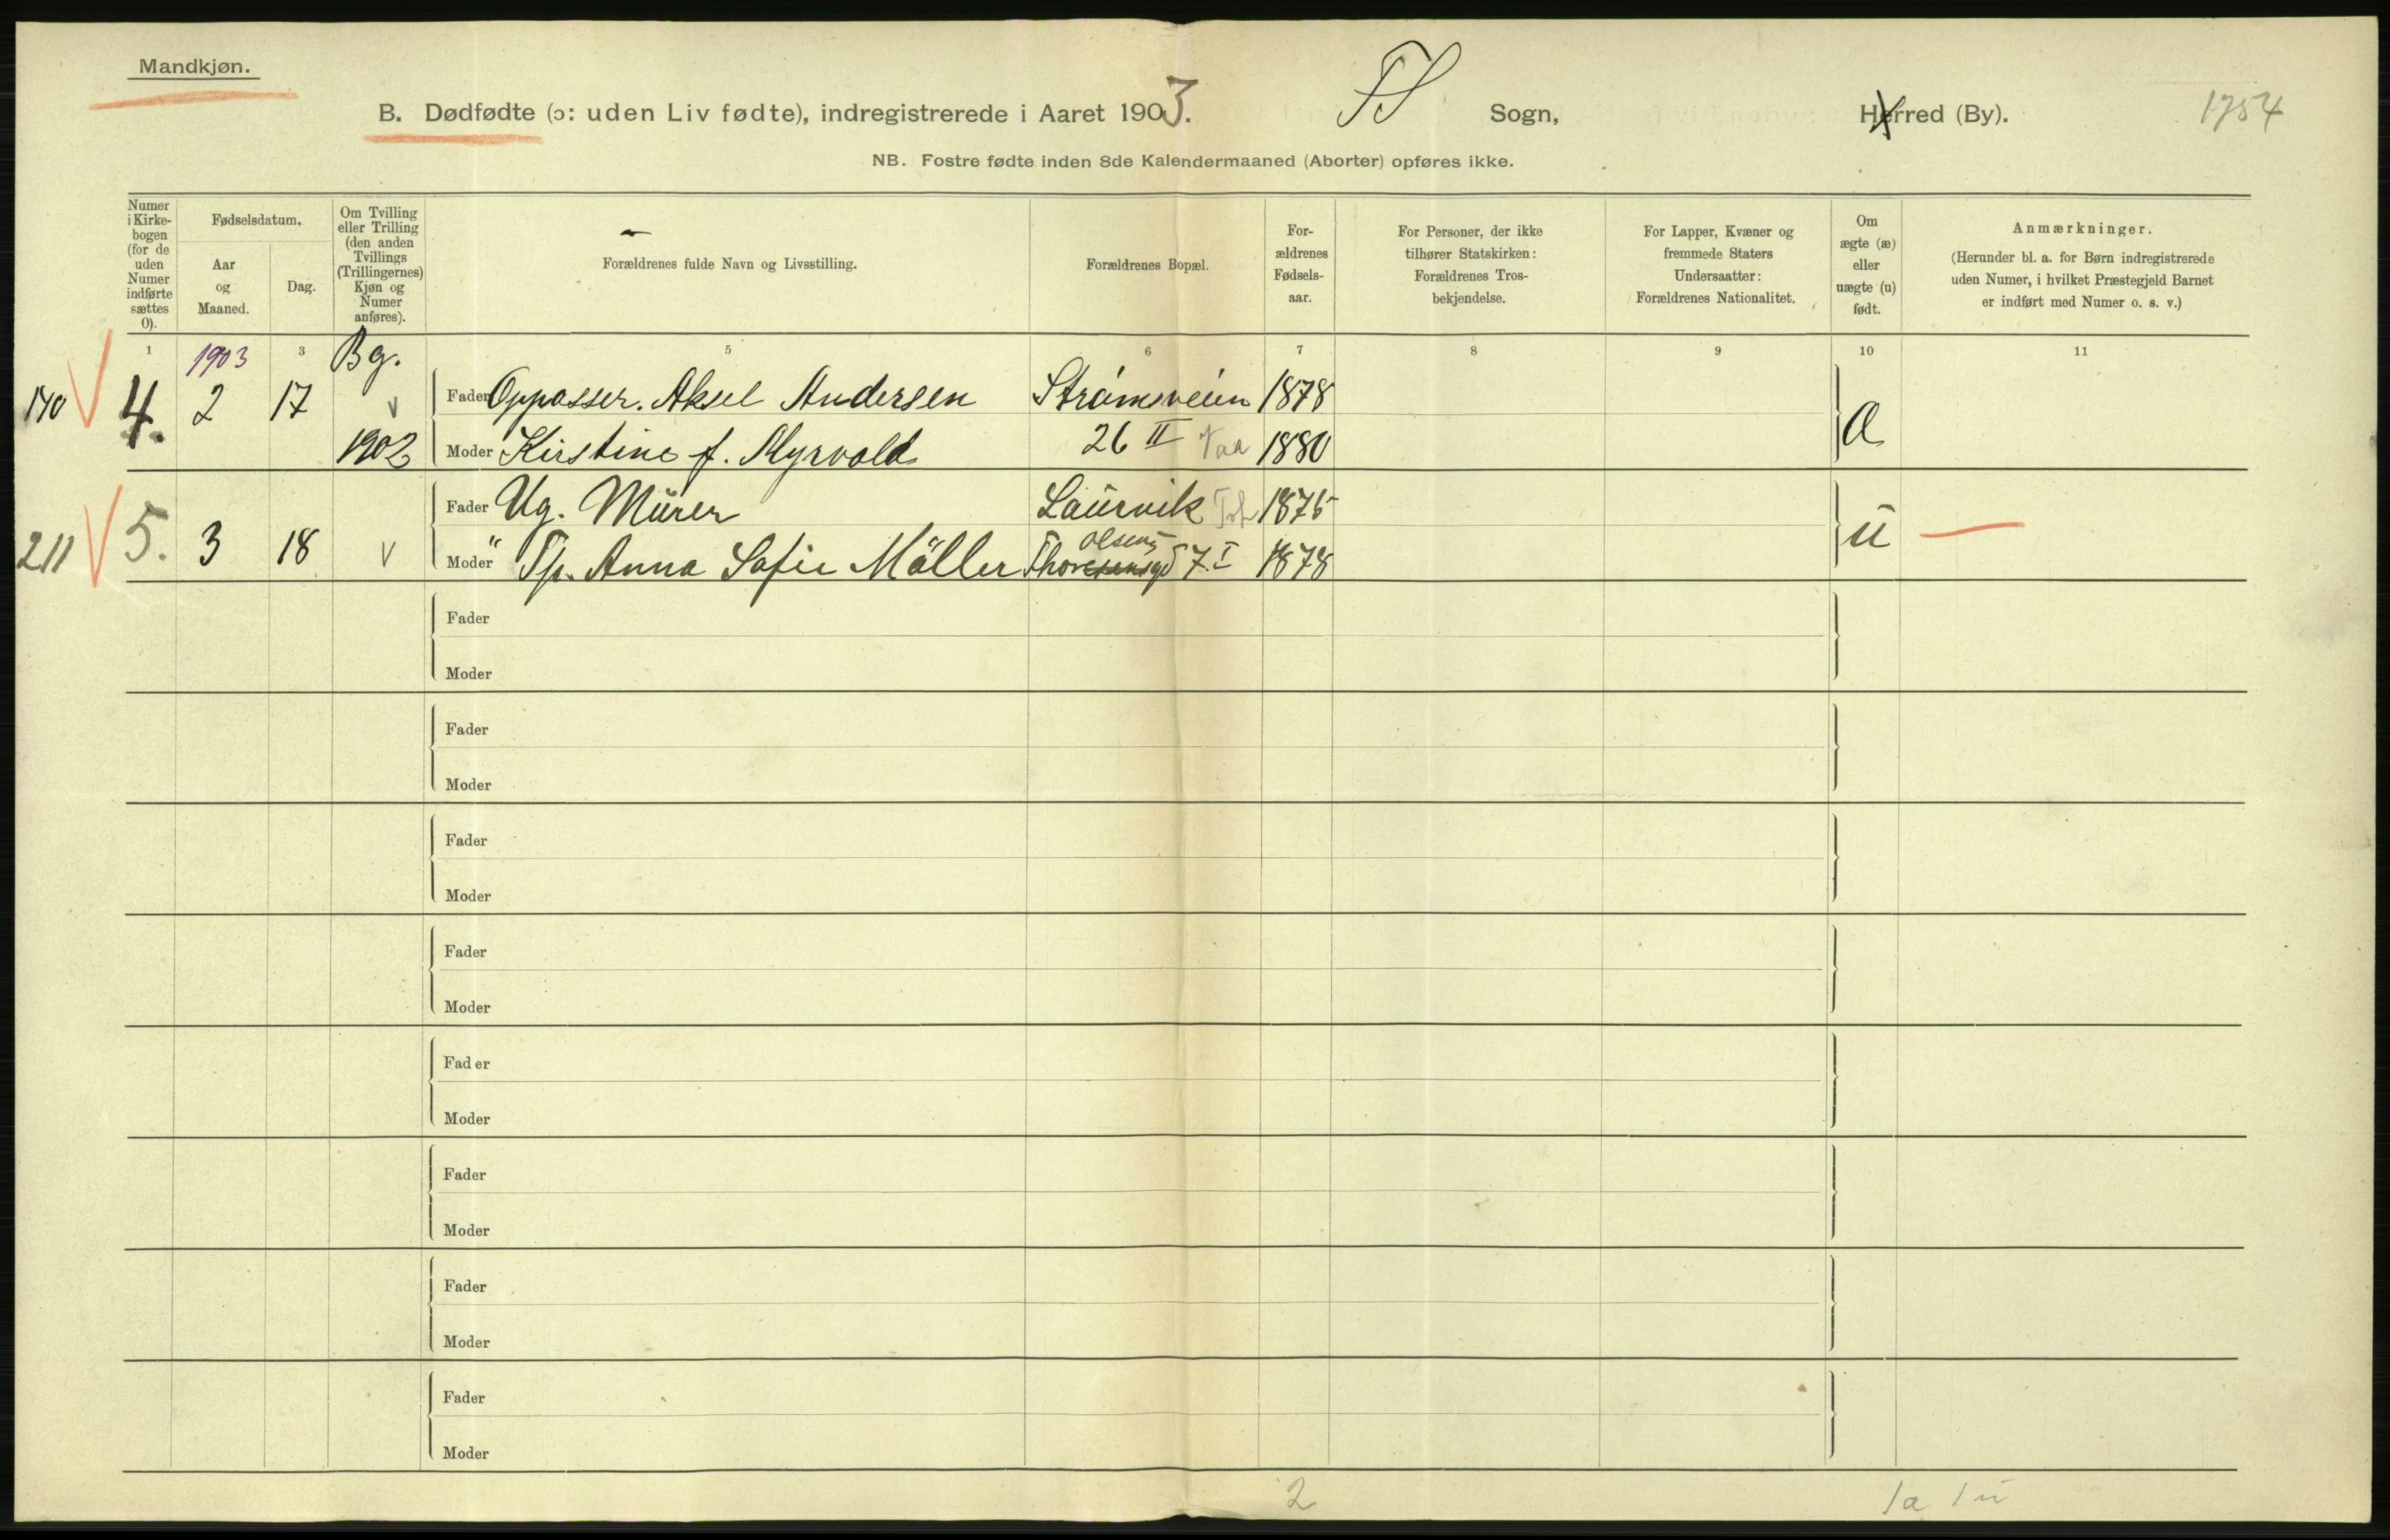 Mandkjøn.
B. Dødfødte (ɔ: uden Liv fødte), indregistrerede i Aaret 1903. Sogn, Herred (By). 1754
NB. Fostre fødte inden 8de Kalendermaaned (Aborter) opføres ikke.
Numer i Kirke-bogen (for de uden Numer indførte sættes 0).
Fødselsdatum.
Aar og Maaned.
Dag.
Om Tvilling eller Trilling (den anden Tvillings (Trillingernes) Kjøn og Numer anføres).
Forældrenes fulde Navn og Livsstilling.
Forældrenes Bopæl.
For-ældrenes Fødsels-aar.
For Personer, der ikke tilhører Statskirken: Forældrenes Tros-bekjendelse.
For Lapper, Kvæner og fremmede Staters Undersaatter: Forældrenes Nationalitet.
Om ægte (æ) eller uægte (u) født.
Anmærkninger.
(Herunder bl. a. for Børn indregistrerede uden Numer, i hvilket Præstegjeld Barnet er indført med Numer o. s. v.)
1 1903 3 Bg. 5 6 7 8 9 10 11
140 4. 2 17 v Fader Oppasser. Aksel Andersen Strømsveien 1878
1902 Moder Kirstine f. Myrvold 26 II 1880 a
Fader Ug. Murer Laurvik 1875
211 5. 3 18 v Moder " Tp. Anna Sofie Møller Olsens 7 I 1878 u
Fader
Moder
Fader
Moder
Fader
Moder
Fader
Moder
Fader
Moder
Fader
Moder
Fader
Moder
Fader
Moder
2 1a 1u